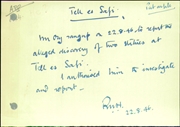 Tell es Safi.
Mr Ory rang up on 22.8.46 to report the
alleged discovery of two statues at
Tell es Safi.
I authorised him to investigate
and report.
R.W.H.
22.8.46.